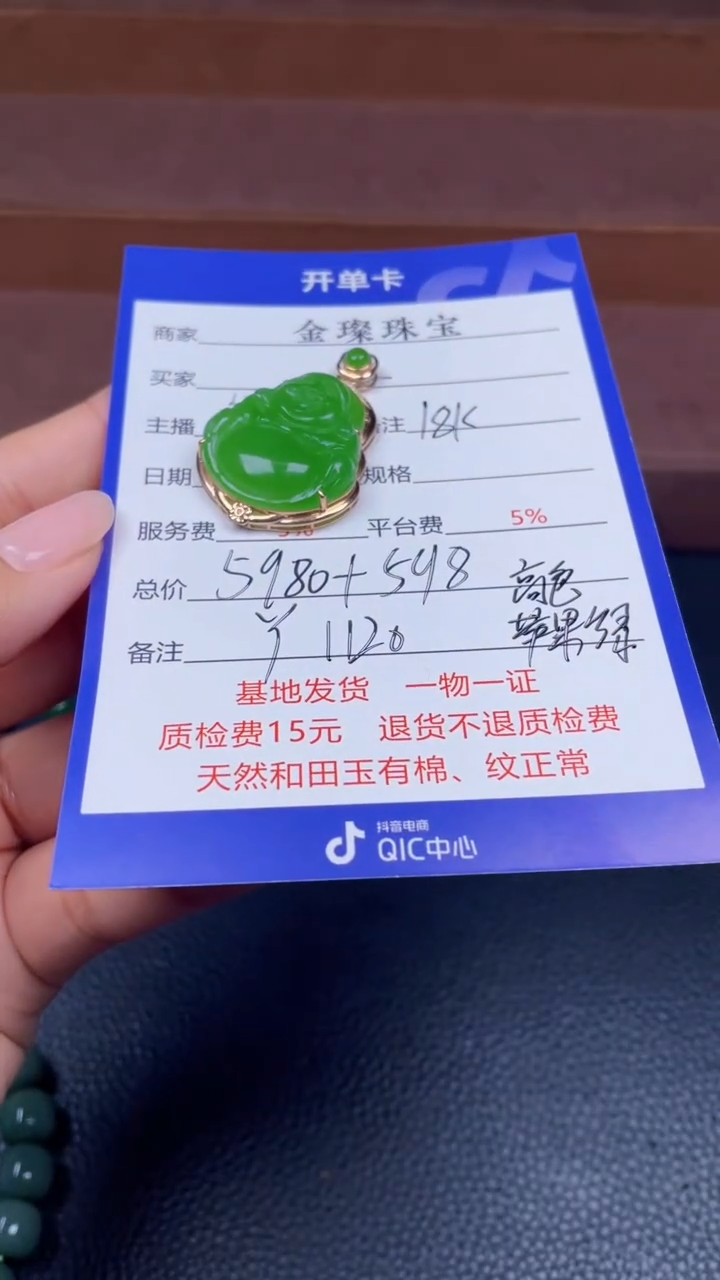 开单卡
商家 金璨珠宝
买家
主播 注 18K
日期 规格
服务费 5% 平台费 5%
总价 5980+598 高色
备注 ¥1120 苹果绿
基地发货 一物一证
质检费15元 退货不退质检费
天然和田玉有棉、纹正常
抖音电商
QIC中心